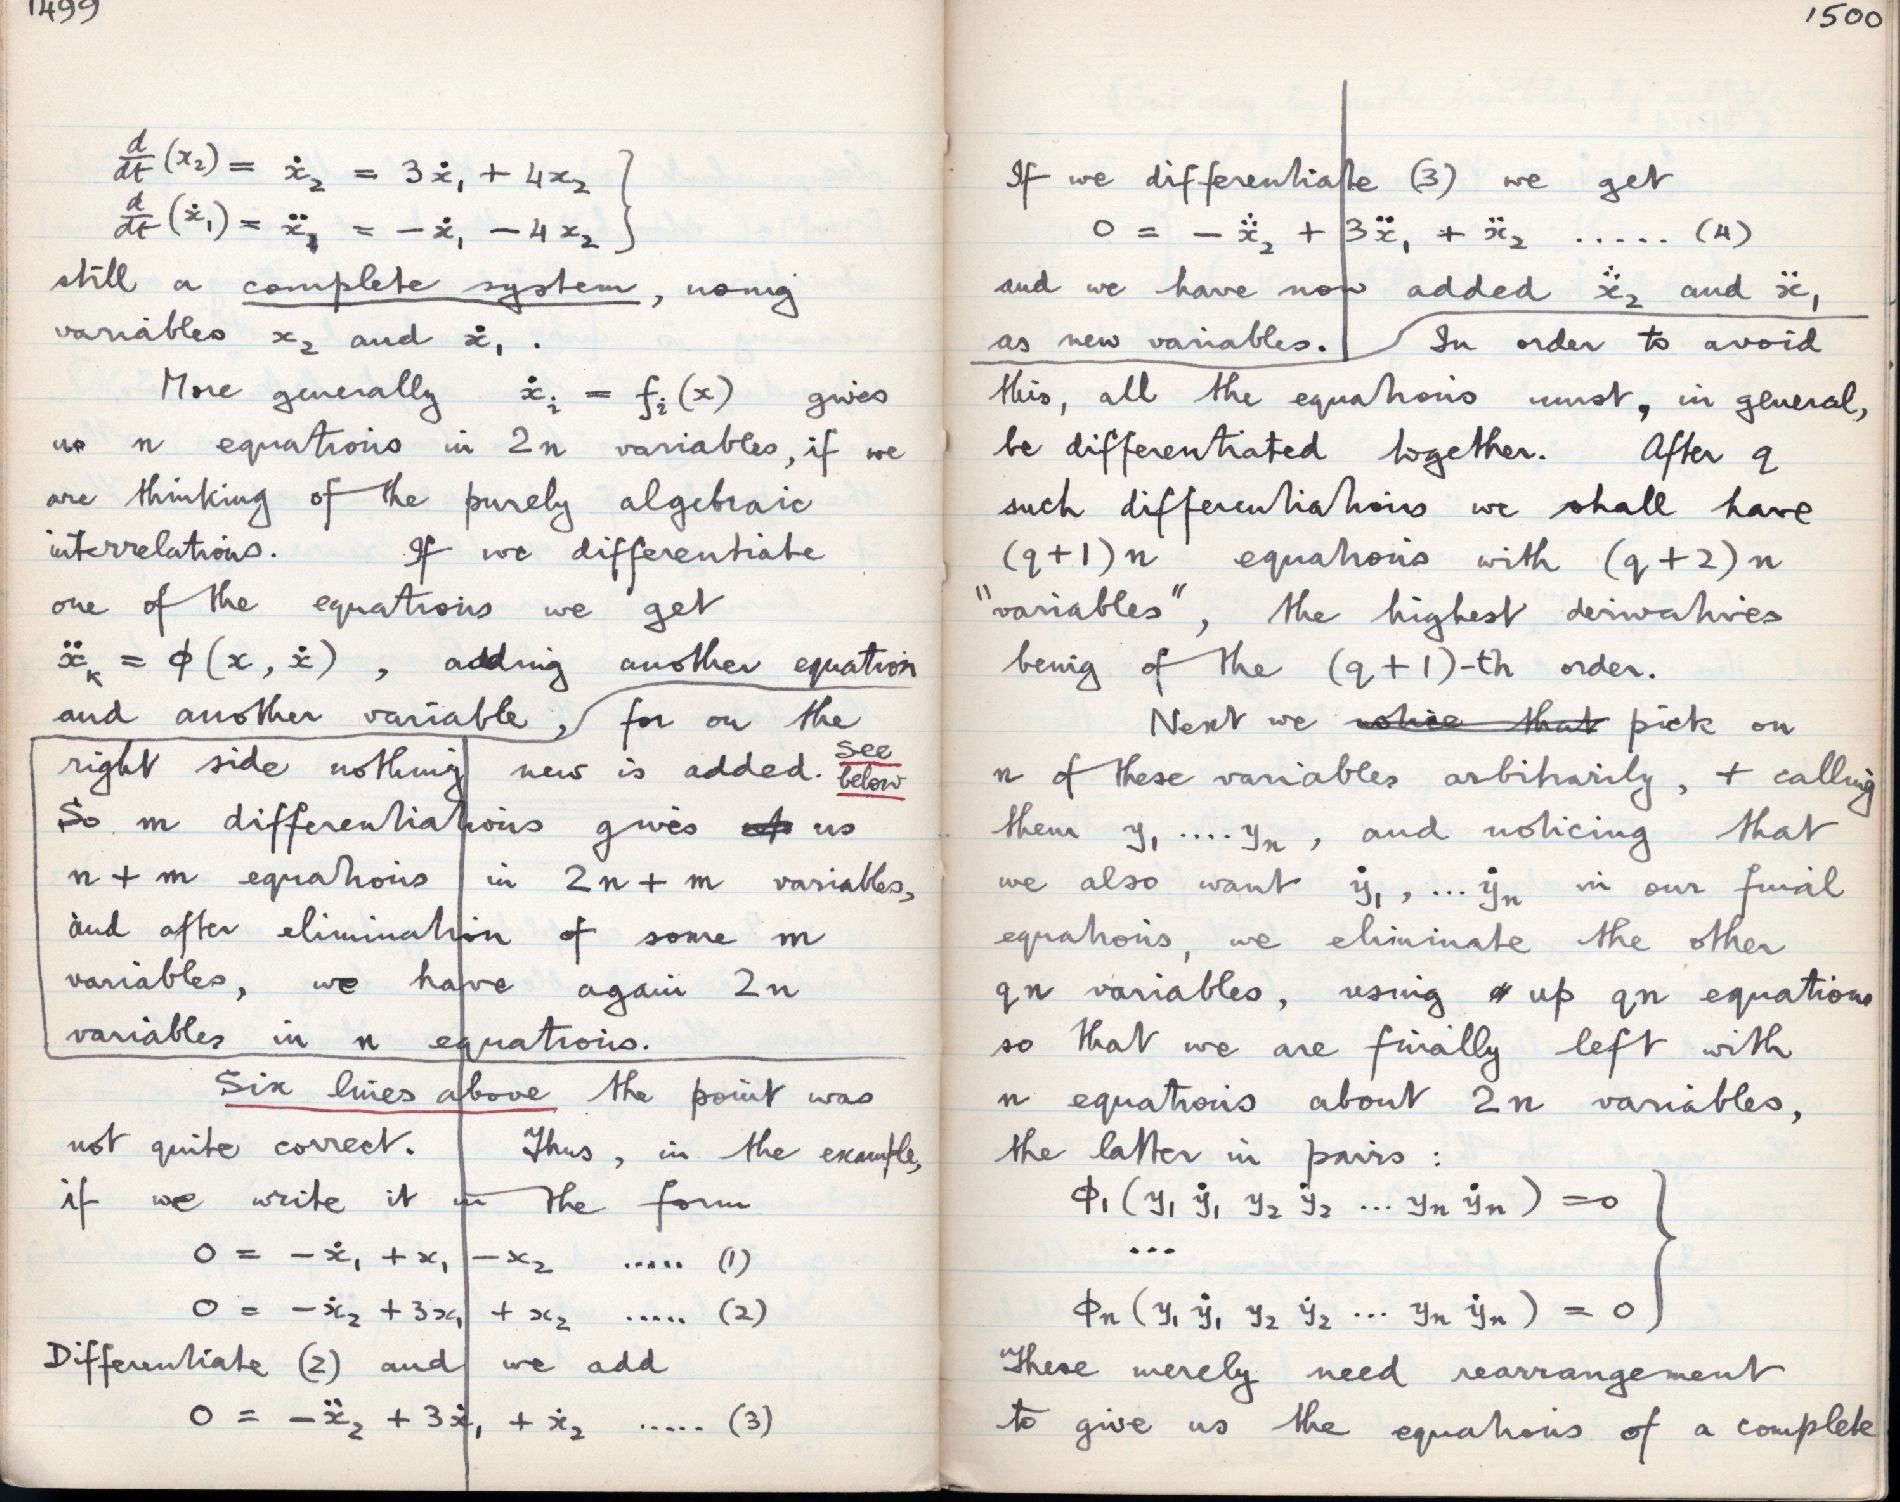 1499
d/dt (x₂) = ẋ₂ = 3ẋ₁ + 4x₂
d/dt (ẋ₁) = ẍ₁ = −ẋ₁ − 4x₂
still a complete system, using
variables x₂ and ẋ₁.
More generally ẋᵢ = fᵢ(x) gives
us n equations in 2n variables, if we
are thinking of the purely algebraic
interrelations. If we differentiate
one of the equations we get
ẍₖ = ϕ(x, ẋ), adding another equation
and another variable, for on the
right side nothing new is added. See below
So m differentiations gives us
n+m equations in 2n+m variables,
and after elimination of some m
variables, we have again 2n
variables in n equations.
Six lines above the point was
not quite correct. Thus, in the example,
if we write it in the form
0 = −ẋ₁ + x₁ − x₂ ..... (1)
0 = −ẋ₂ + 3x₁ + x₂ ..... (2)
Differentiate (2) and we add
0 = −ẍ₂ + 3ẋ₁ + ẋ₂ ..... (3)
1500
If we differentiate (3) we get
0 = −x⃛₂ + 3ẍ₁ + ẍ₂ ..... (4)
and we have now added x⃛₂ and ẍ₁
as new variables. In order to avoid
this, all the equations must, in general,
be differentiated together. After q
such differentiations we shall have
(q+1)n equations with (q+2)n
"variables", the highest derivatives
being of the (q+1)-th order.
Next we notice that pick on
n of these variables arbitrarily, + calling
them y₁ .... yₙ, and noticing that
we also want ẏ₁, ... ẏₙ in our final
equations, we eliminate the other
qn variables, using up qn equations
so that we are finally left with
n equations about 2n variables,
the latter in pairs:
ϕ₁(y₁ ẏ₁ y₂ ẏ₂ ... yₙ ẏₙ) = 0
...
ϕₙ(y₁ ẏ₁ y₂ ẏ₂ ... yₙ ẏₙ) = 0
These merely need rearrangement
to give us the equations of a complete